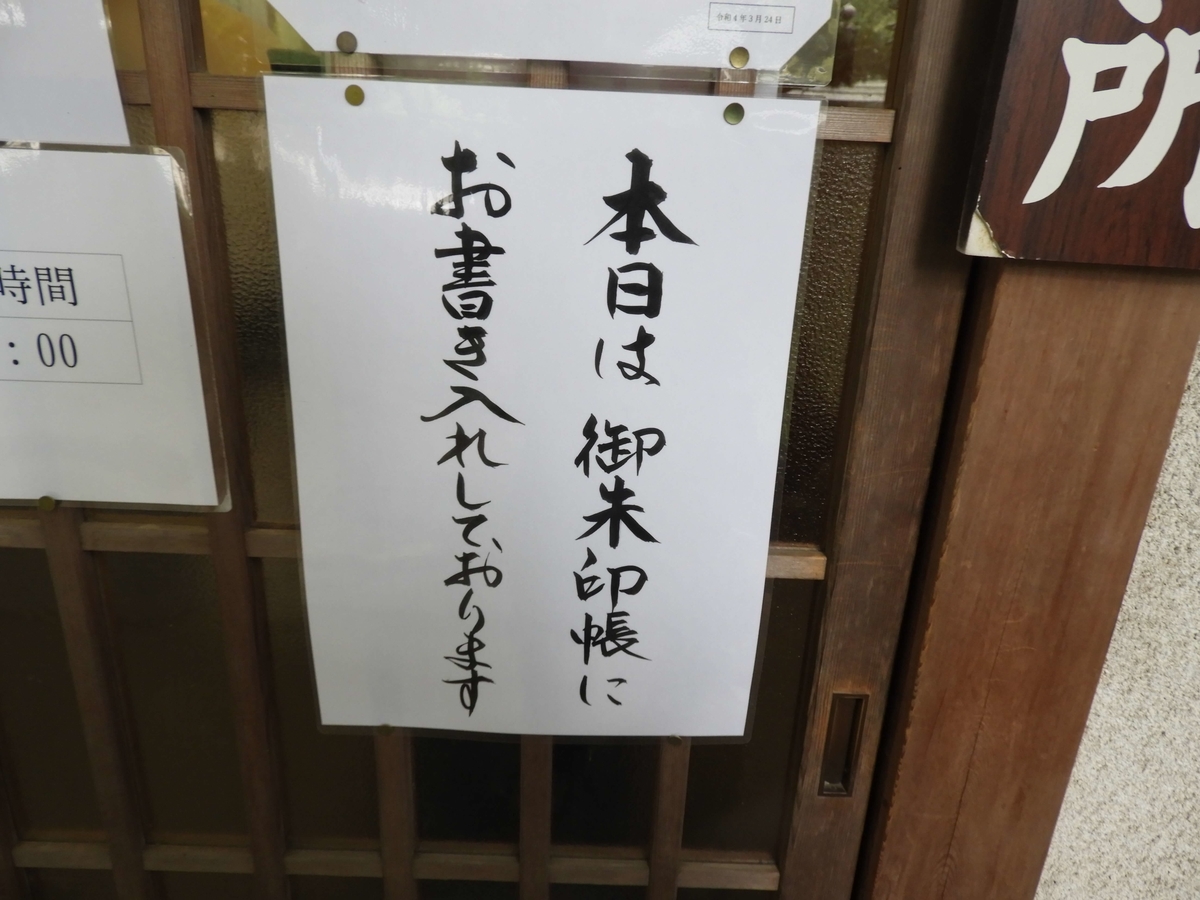 本日は 御朱印帳に
お書き入れしております
令和4年3月24日
所
時間
:00